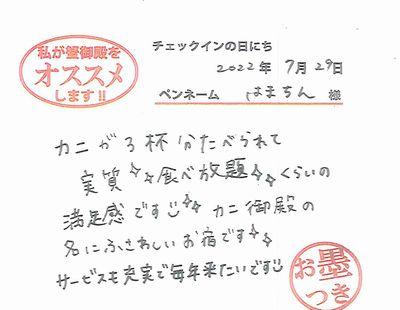 私が蟹御殿を
オススメ
します!!
チェックインの日にち
2022年 7月29日
ペンネーム はまちん 様
カニが3杯分たべられて
実質✨食べ放題✨くらいの
満足感です☺✨ カニ御殿の
名にふさわしいお宿です✨
サービスも充実で毎年来たいです☺
お墨
つき